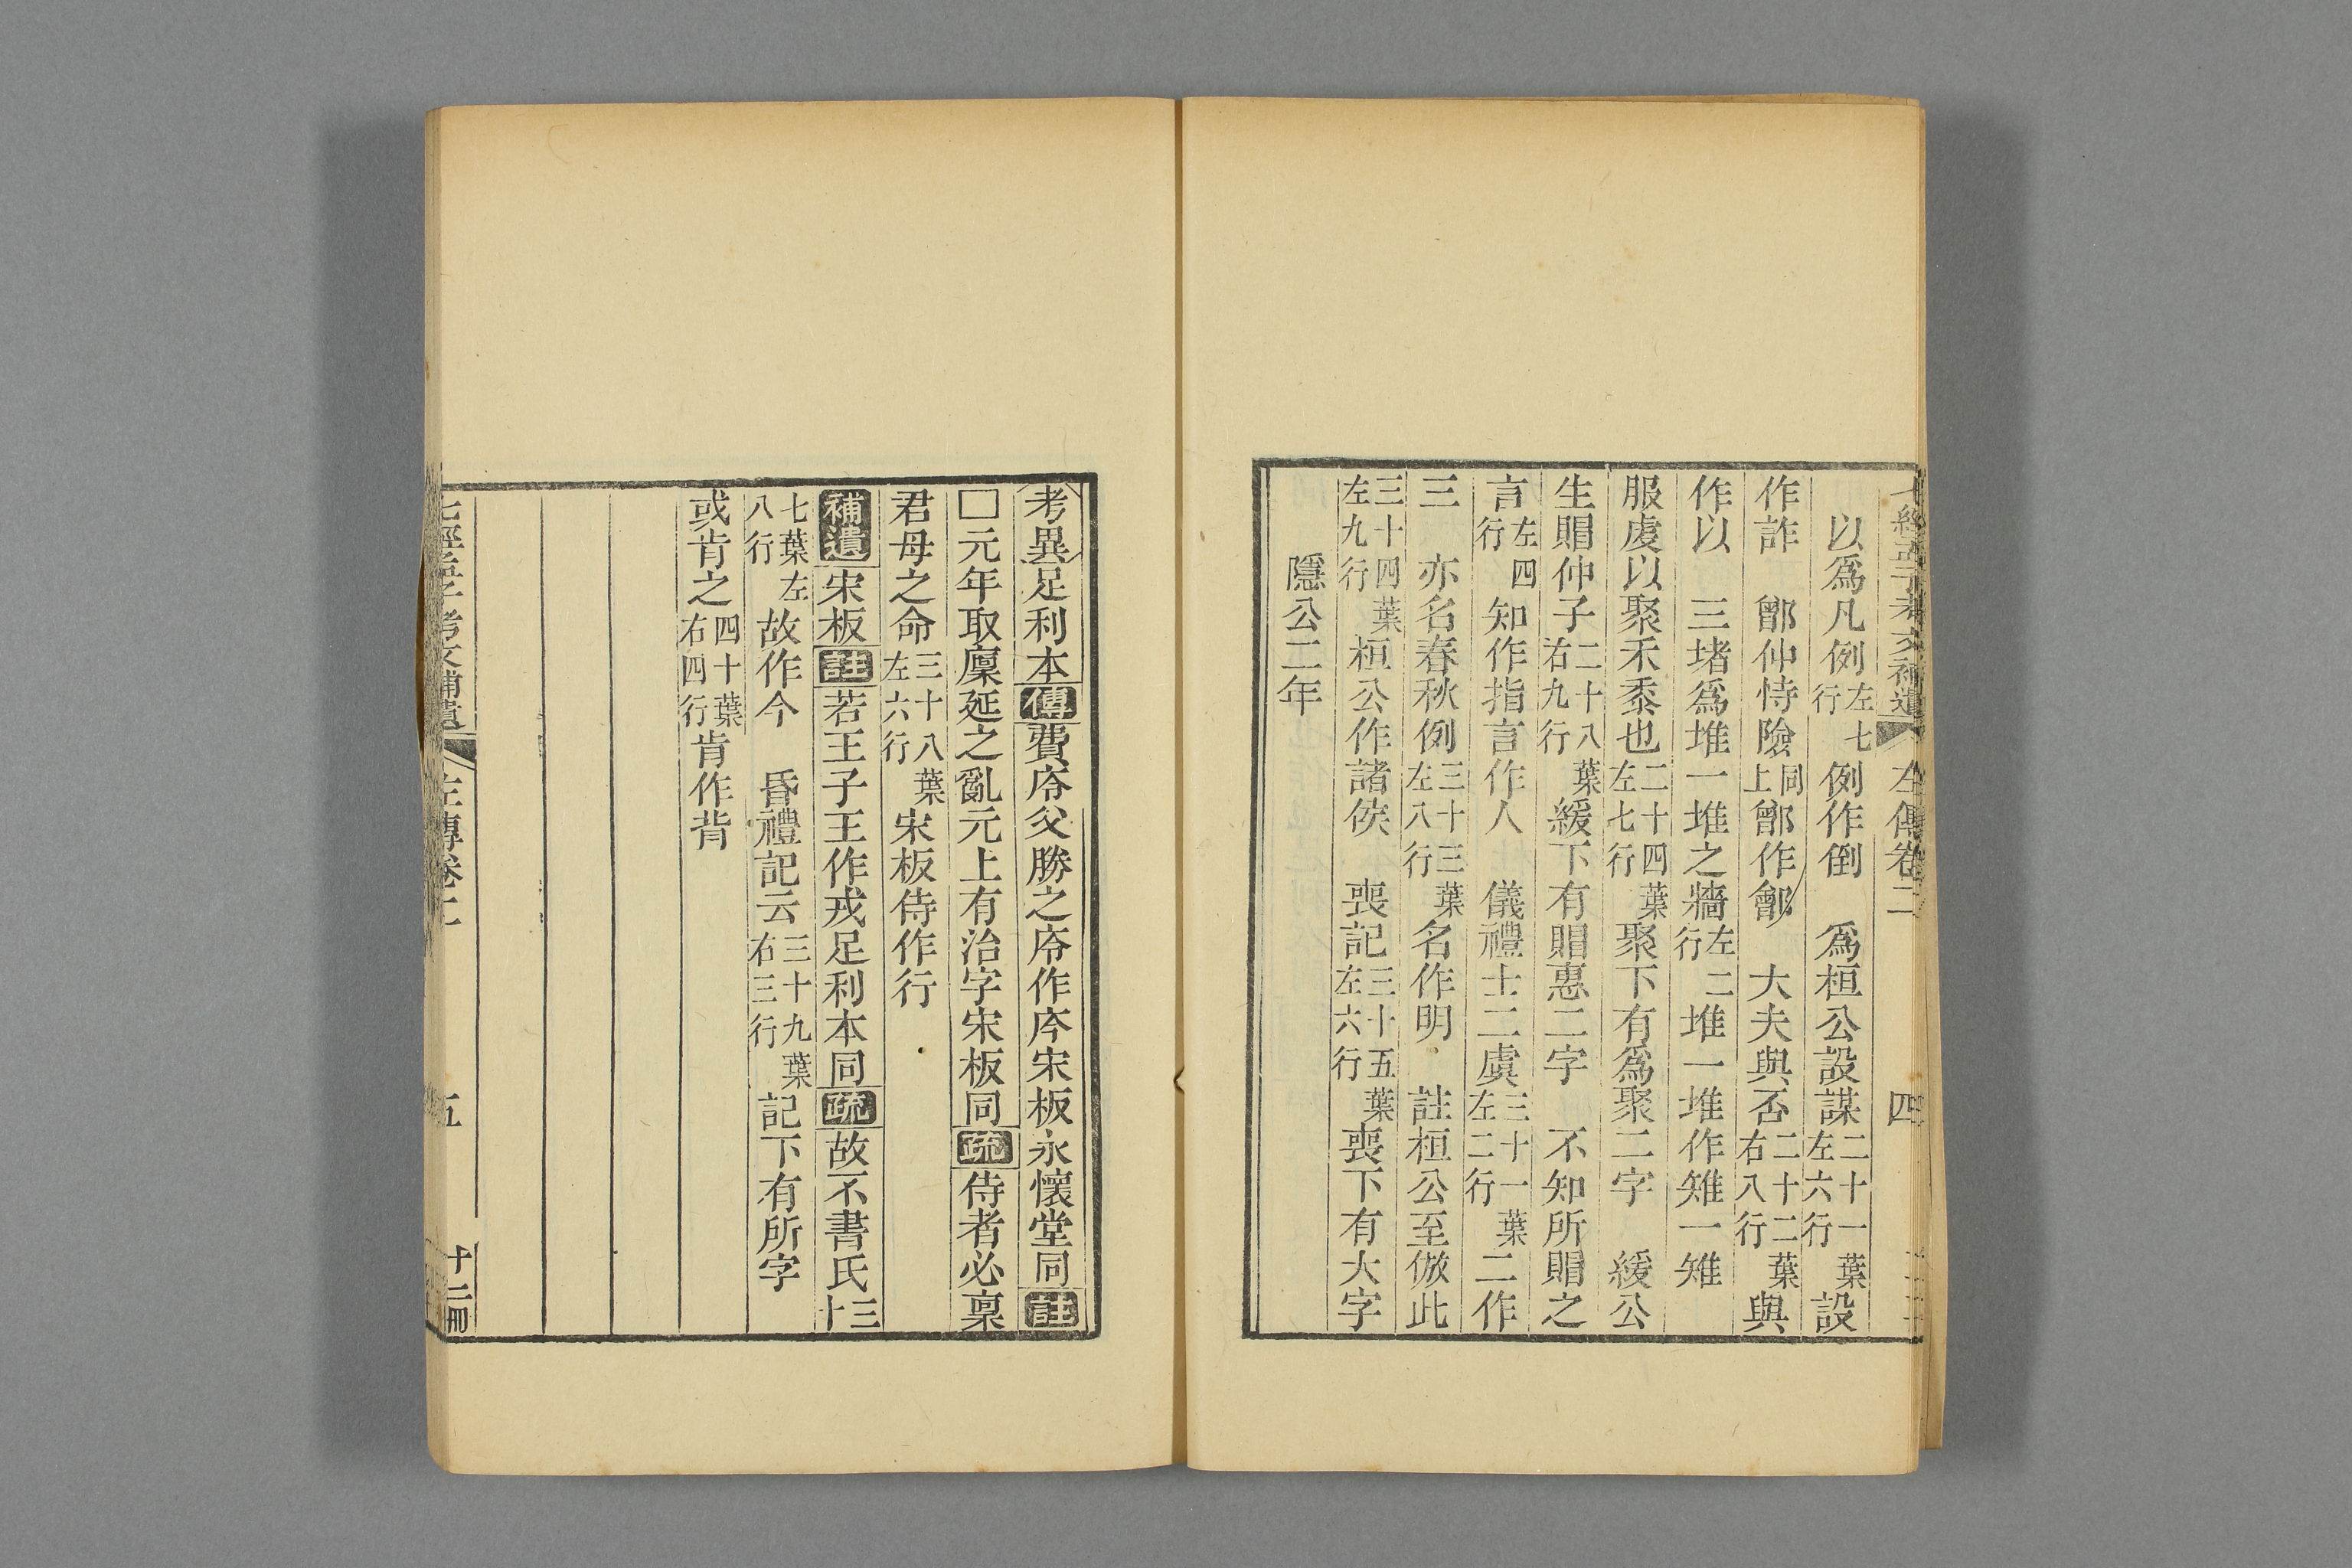 七經孟子考文補遺 左傳卷二 四
以爲凡例左七行例作倒 爲桓公設謀二十一葉左六行設
作詐 鄫仲恃險同上鄫作鄶 大夫與否二十二葉右八行與
作以 三堵爲堆一堆之牆左二行堆一堆作雉一雉
服虔以聚禾黍也二十四葉左七行聚下有爲聚二字 緩公
生賵仲子二十八葉右九行緩下有賵惠二字 不知所賵之
言左四行知作指言作人 儀禮士二虞三十一葉左二行二作
三 亦名春秋例三十三葉左八行名作明 註桓公至倣此
三十四葉左九行桓公作諸侯 喪記三十五葉左六行喪下有大字
隱公二年
考異足利本傳費庈父勝之庈作庝宋板永懷堂同註
□元年取廩延之亂元上有治字宋板同疏侍者必稟
君母之命三十八葉左六行宋板侍作行
補遺宋板註若王子王作戎足利本同疏故不書氏三十
七葉左八行故作今 昏禮記云三十九葉右三行記下有所字
或肯之四十葉右四行肯作背
七經孟子考文補遺 左傳卷二 五 十二冊